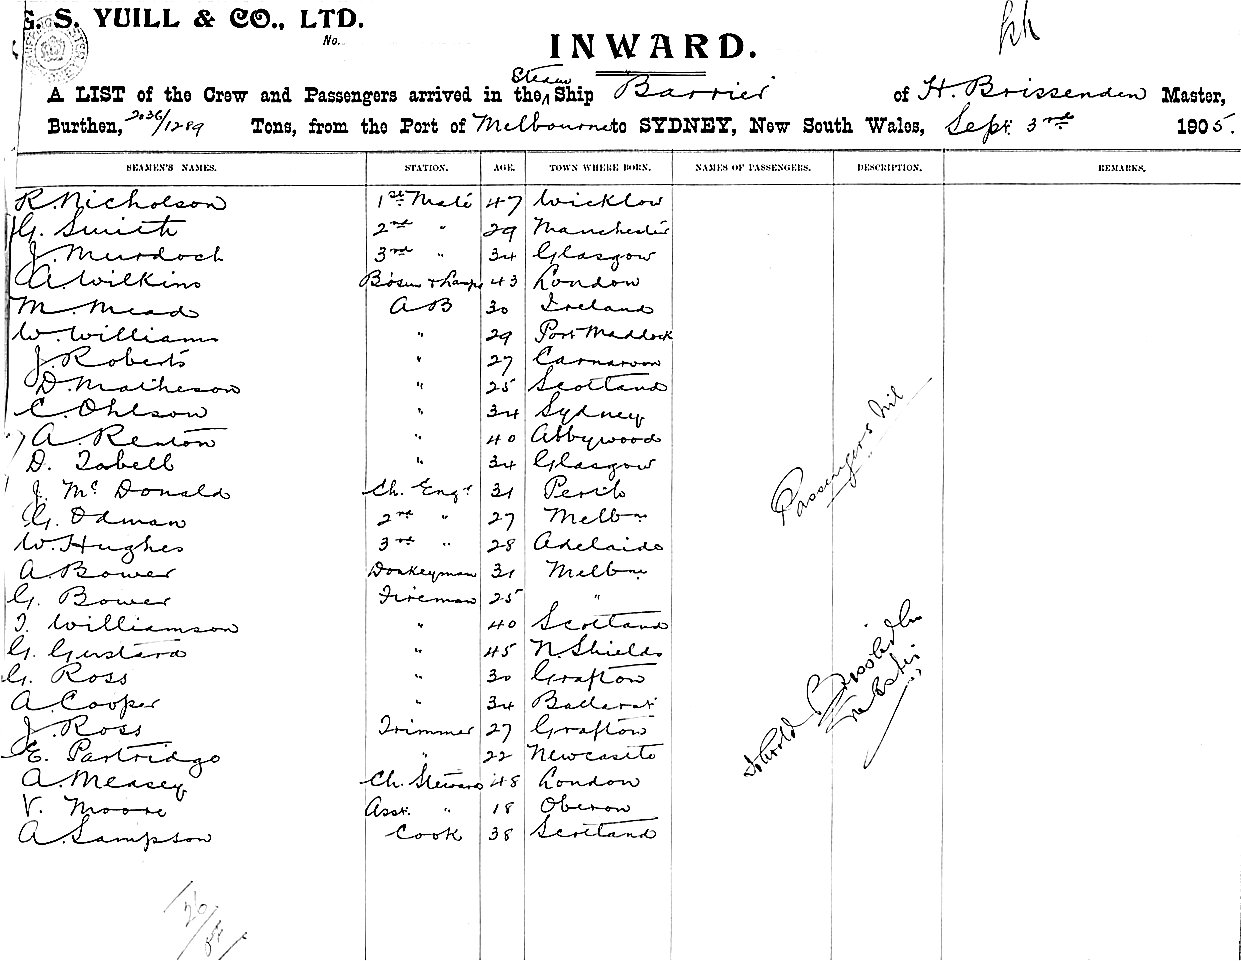 G. S. YUILL & CO., LTD.
No.
INWARD.
A LIST of the Crew and Passengers arrived in the Steam Ship Barrier of H. Brissenden Master,
Burthen, 2036/1289 Tons, from the Port of Melbourne to SYDNEY, New South Wales, Sept 3rd 1905.
SEAMEN'S NAMES. STATION. AGE. TOWN WHERE BORN. NAMES OF PASSENGERS. DESCRIPTION. REMARKS.
R. Nicholson 1st Mate 47 Wicklow
G. Smith 2nd " 29 Manchester
J. Murdoch 3rd " 34 Glasgow
A Wilkins Bosun & Lamps 43 London
M. Mead A B 30 Ireland
W. Williams " 29 Port Maddock
J. Roberts " 27 Carnarvon
D. Matheson " 25 Scotland
C. Ohlson " 34 Sydney
A. Renton " 40 Abbywood
D. Tabell " 34 Glasgow
J. Mc Donald Ch. Engr 31 Perth
G. Odman 2nd " 27 Melbne
W. Hughes 3rd " 28 Adelaide
A. Bower Donkeyman 31 Melbne
G. Bower Fireman 25 "
T. Williamson " 40 Scotland
G. Gustard " 45 N. Shields
G. Ross " 30 Grafton
A. Cooper " 34 Ballarat
J. Ross Trimmer 27 Grafton
E. Partridge " 22 Newcastle
A. Measey Ch. Steward 48 London
V. Moore Asst. " 18 Oberon
A. Sampson Cook 38 Scotland
Passengers Nil
Harold Brissenden
Master
26